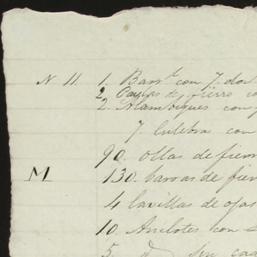 N 11. 1. Barr.l con 7. do
2. Pay.as de fierro co
2. Alambiques con
7 Culebra con
90. ollas de fierr
M 130. varas de fier
4 Cavillas de ojas
10. Anclotes con
5. d.o sin ca